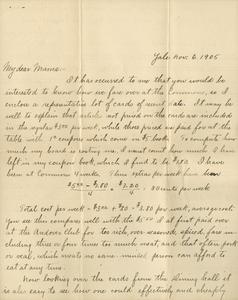 Yale Nov. 6, 1905
My dear Mama:-
It has occurred to me that you would be
interested to know how we fare over at the Commons, so I
enclose a representative lot of cards of recent date. It may be
well to explain that articles not priced on the cards are included
in the regular $3.00 per week, while those priced are paid for at the
table with 1¢ coupons which come in $5 books. To compute how
much my board is costing me, I must count how much I have
left in my coupon book, which I find to be $2.80. I have
been at Commons 4 weeks. Thus extras per week have been
$5.00 - $2.80 / 4 = $2.20 / 4
Total cost per week - $3.00 +
you see this compares well with the $5.00 I at first paid over
at the Andover Club for too rich, over seasoned, spiced, fare in-
cluding three or four times too much meat, and that often pork
or veal, which meats no sane-minded person can afford to
eat at any time.
Now looking over the cards from the Dining hall it
is also easy to see how one could effectively and cheaply